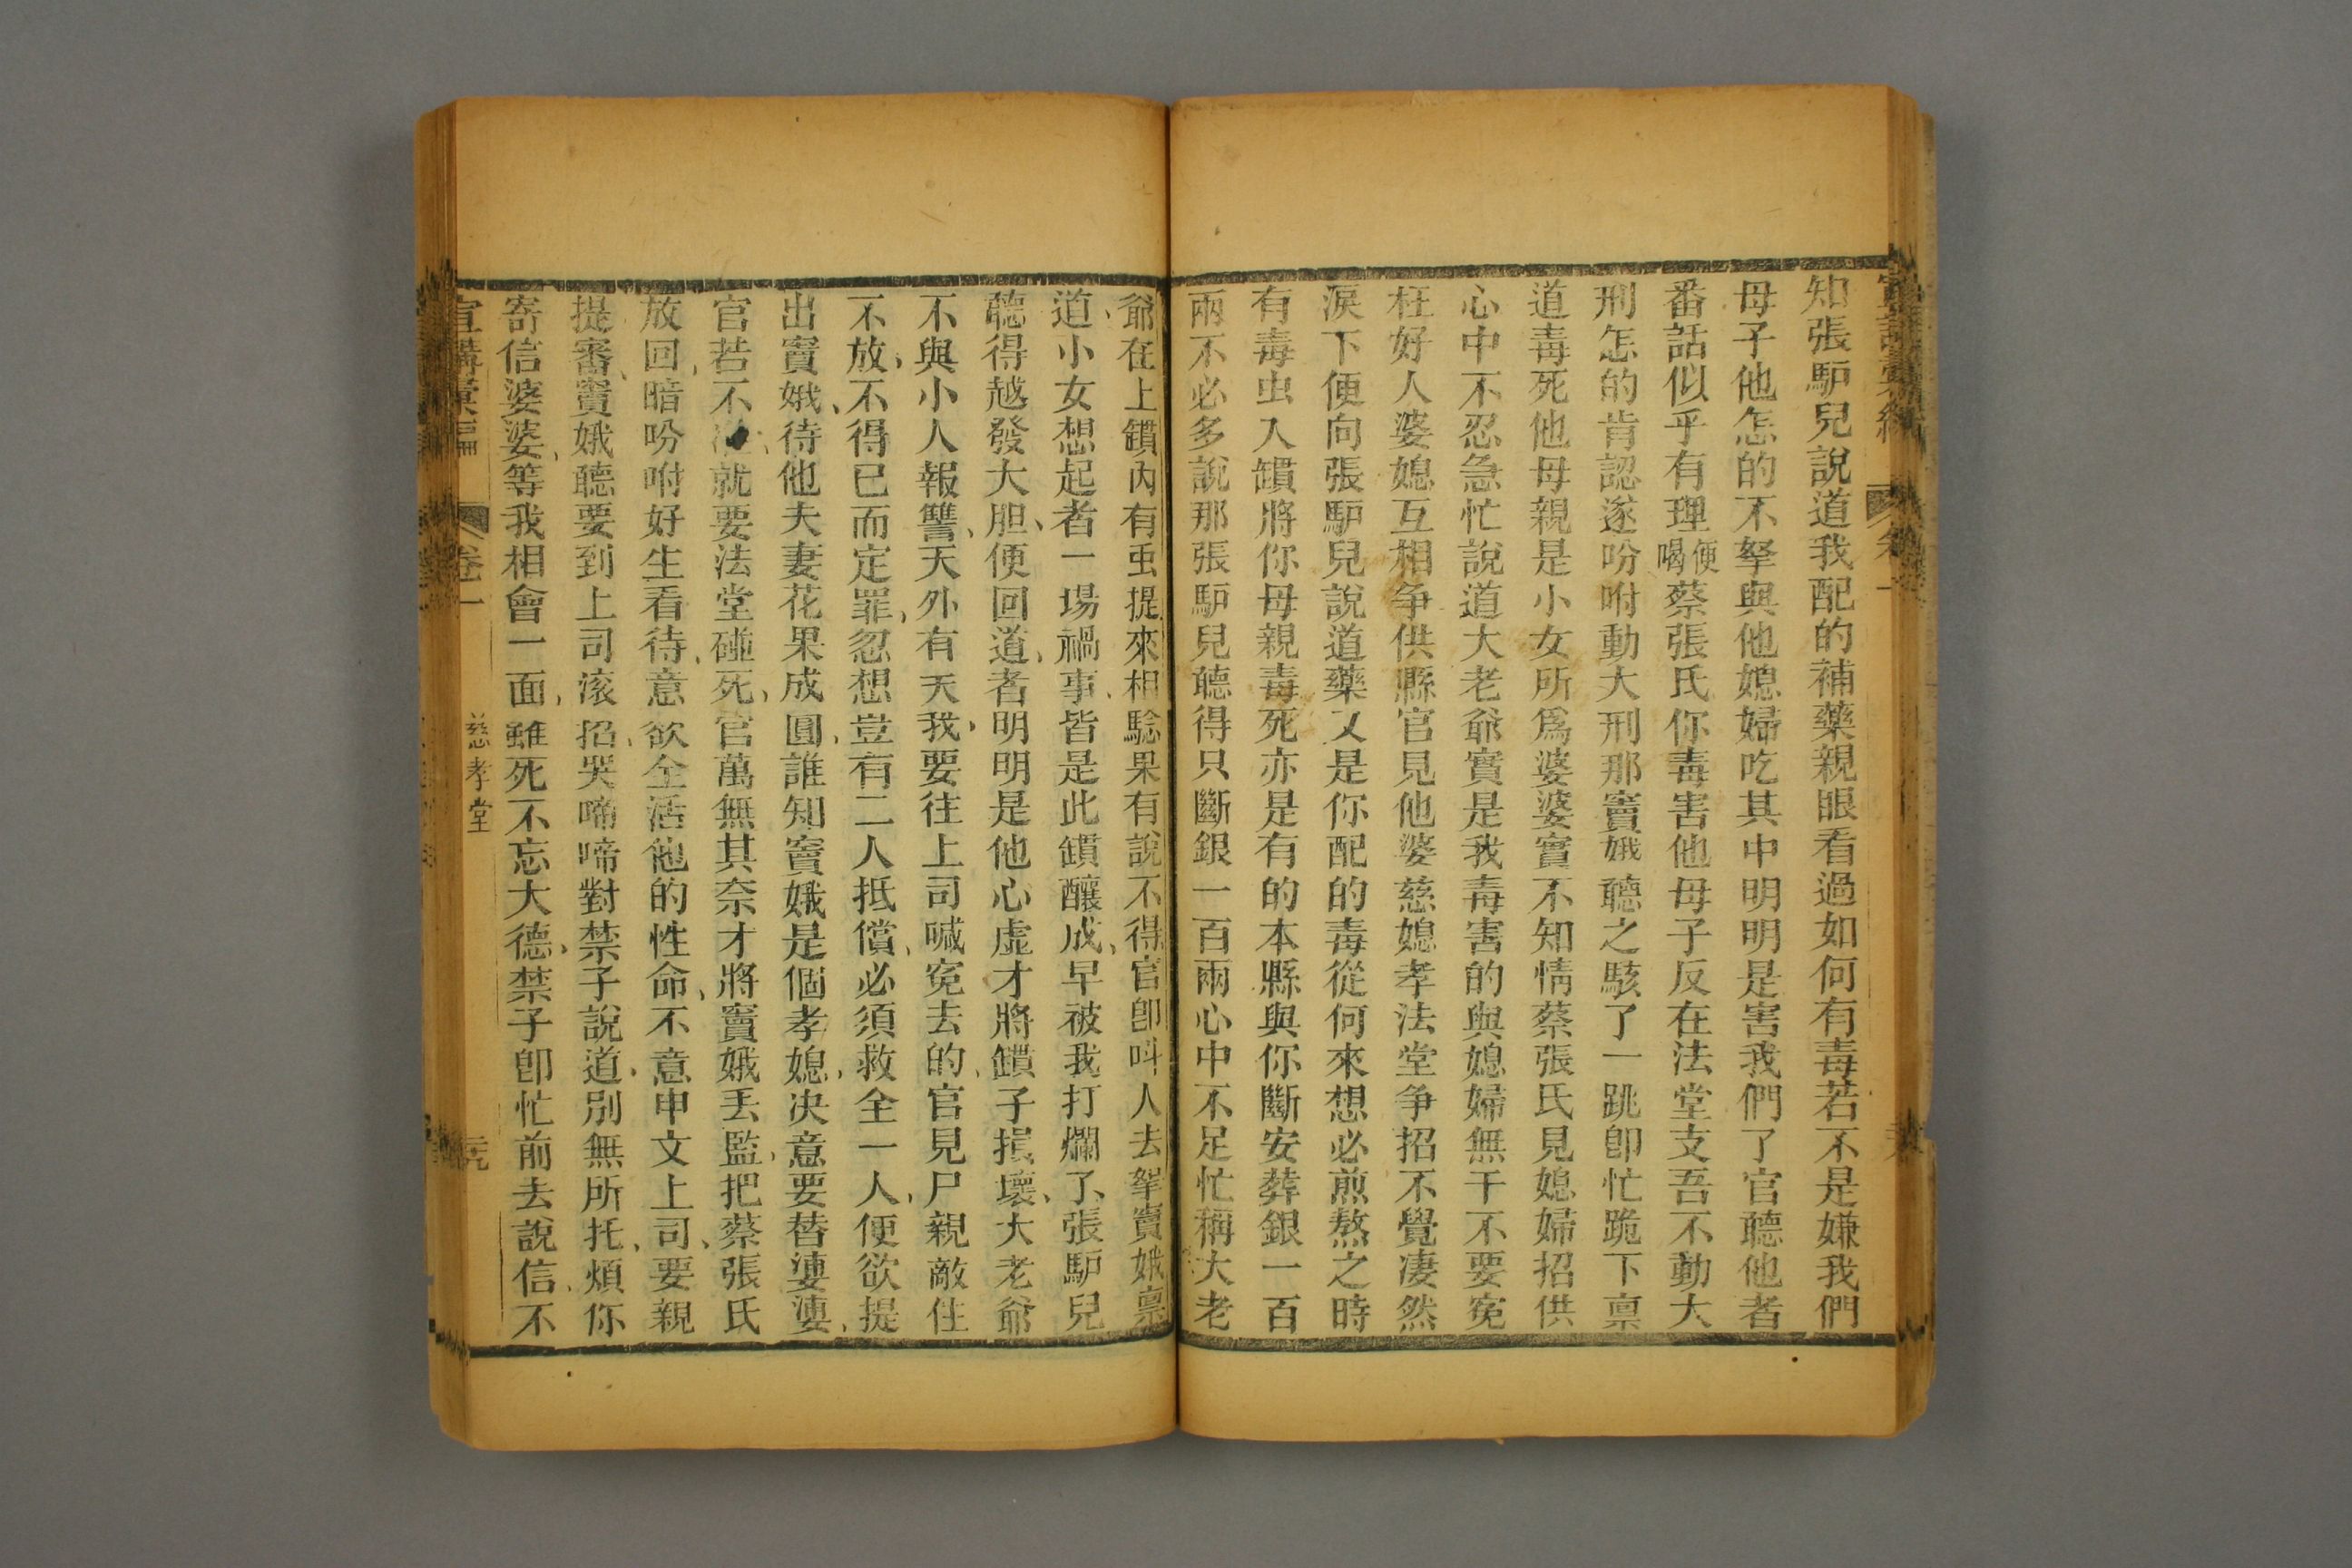 知張馿兒說道我配的補藥親眼看過如何有毒若不是嫌我們
母子他怎的不拏與他媳婦吃其中明明是害我們了官聽他者
番話似乎有理便喝蔡張氏你毒害他母子反在法堂支吾不動大
刑怎的肯認遂吩咐動大刑那竇娥聽之駭了一跳卽忙跪下禀
道毒死他母親是小女所爲婆婆實不知情蔡張氏見媳婦招供
心中不忍急忙說道大老爺實是我毒害的與媳婦無干不要寃
枉好人婆媳互相争供縣官見他婆慈媳孝法堂争招不覺淒然
淚下便向張馿兒說道藥又是你配的毒從何來想必煎熬之時
有毒虫入鑵將你母親毒死亦是有的本縣與你斷安葬銀一百
兩不必多說那張馿兒聽得只斷銀一百兩心中不足忙稱大老
爺在上鑵內有虫提來相驗果有說不得官卽呌人去拏竇娥禀
道小女想起者一場禍事皆是此鑵釀成早被我打爛了張馿兒
聽得越發大胆便回道者明明是他心虛才將鑵子損壞大老爺
不與小人報讐天外有天我要往上司喊寃去的官見尸親敵住
不放不得已而定罪忽想豈有二人抵償必須救全一人便欲提
出竇娥待他夫妻花果成圓誰知竇娥是個孝媳决意要替婆婆
官若不就要法堂碰死官萬無其奈才將竇娥丟監把蔡張氏
放回暗吩咐好生看待意欲全活他的性命不意申文上司要親
提審竇娥聽要到上司滚招哭啼啼對禁子說道別無所托煩你
寄信婆婆等我相會一面雖死不忘大德禁子卽忙前去說信不
宣講彙編 卷一 慈孝堂